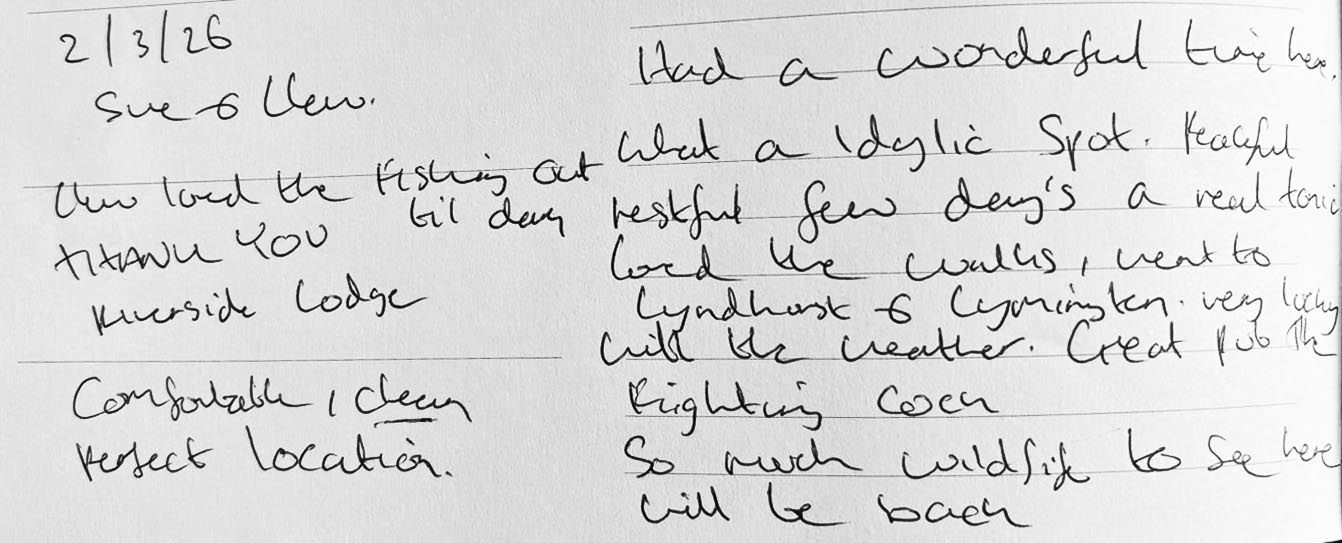 2/3/26
Sue & Clew.
Clew loved the Fishing out
til day
THANK YOU
Riverside Lodge
Comfortable, clean
Perfect location.
Had a wonderful time here.
What a Idylic Spot. Peaceful
restful few day's a real tonic
loved the walks, went to
Lyndhurst & Lymington. very lucky
with the weather. Great Pub The
Fighting Cock
So much wildlife to see here
will be back